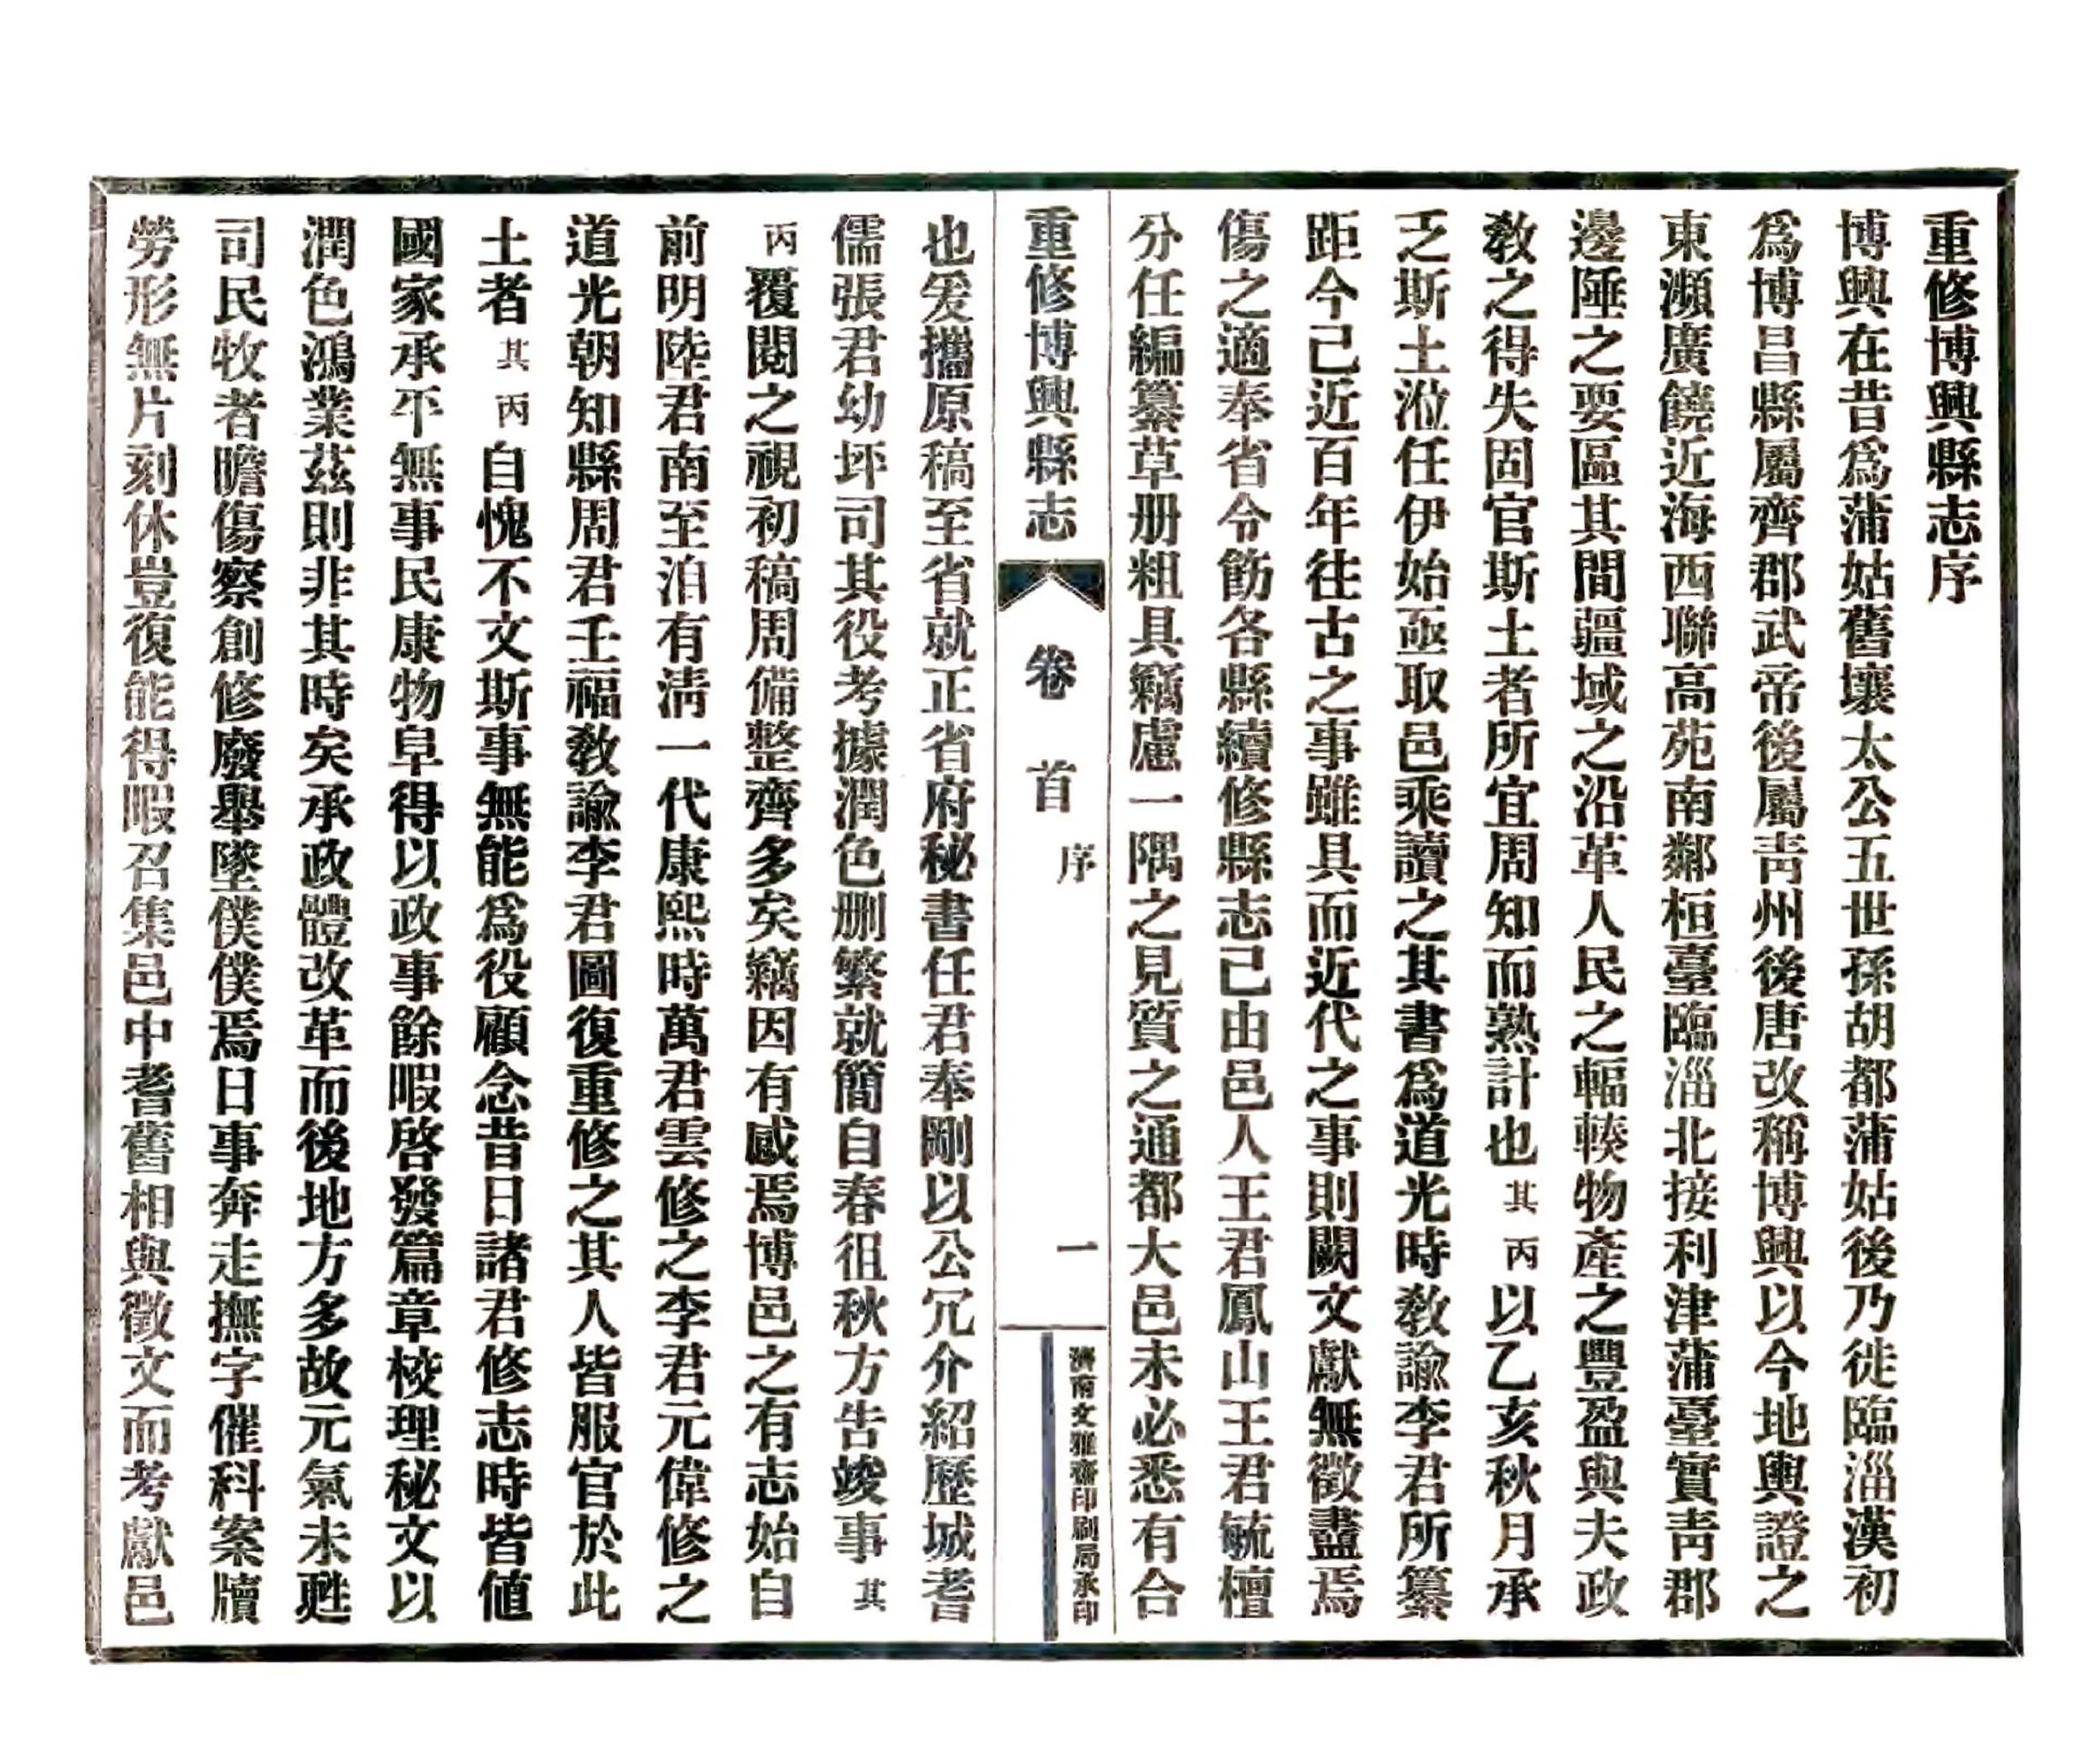 重修博興縣志序
博興在昔爲蒲姑舊壤太公五世孫胡都蒲姑後乃徙臨淄漢初
爲博昌縣屬齊郡武帝後屬靑州後唐改稱博興以今地輿證之
東瀕廣饒近海西聯高苑南鄰桓臺臨淄北接利津蒲臺實靑郡
邊陲之要區其間疆域之沿革人民之輻輳物產之豐盈與夫政
敎之得失固官斯土者所宜周知而熟計也其丙以乙亥秋月承
乏斯土涖任伊始亟取邑乘讀之其書爲道光時敎諭李君所纂
距今已近百年往古之事雖具而近代之事則闕文獻無徵盡焉
傷之適奉省令飭各縣續修縣志已由邑人王君鳳山王君毓檀
分任編纂草册粗具竊慮一隅之見質之通都大邑未必悉有合
重修博興縣志
卷首
序
一
濟南文雅齋印刷局承印
也爰攜原稿至省就正省府秘書任君奉剛以公冗介紹歷城耆
儒張君幼坪司其役考據潤色删繁就簡自春徂秋方告竣事其
丙覆閱之視初稿周備整齊多矣竊因有感焉博邑之有志始自
前明陸君南至洎有淸一代康熙時萬君雲修之李君元偉修之
道光朝知縣周君壬福敎諭李君圖復重修之其人皆服官於此
土者其丙自愧不文斯事無能爲役顧念昔日諸君修志時皆値
國家承平無事民康物阜得以政事餘暇啓發篇章校理秘文以
潤色鴻業茲則非其時矣承政體改革而後地方多故元氣未甦
司民牧者瞻傷察創修廢舉墜僕僕焉日事奔走撫字催科案牘
勞形無片刻休豈復能得暇召集邑中耆舊相與徵文而考獻邑